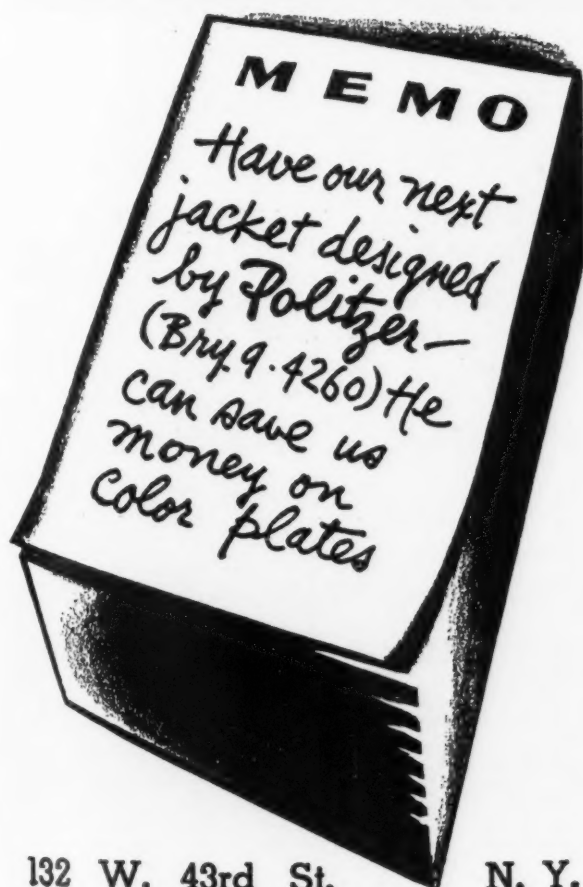 MEMO
Have our next
jacket designed
by Politzer—
(Bry. 9·4260) He
can save us
money on
color plates
132 W. 43rd St. N.Y.